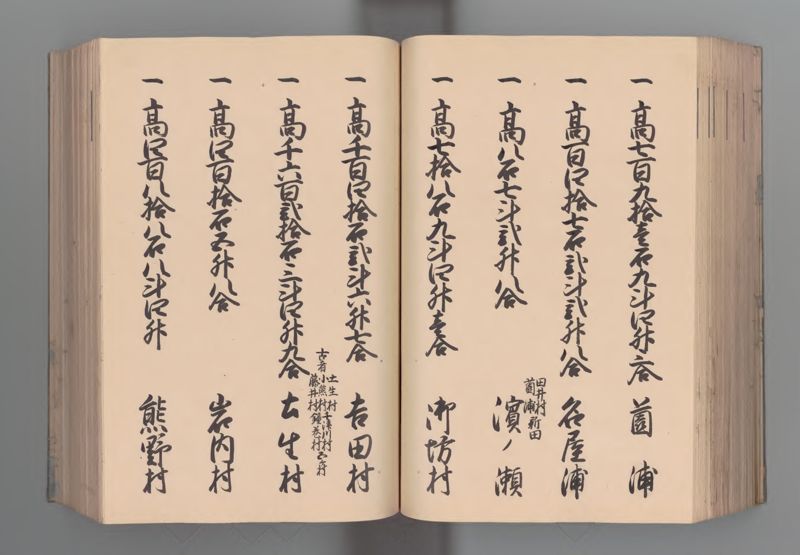 一 高七百九拾壱石九斗四升六合 薗浦
一 高百四拾七石弐斗弐升八合 名屋浦
田井村
薗浦 新田
一 高八石七斗弐升八合 濱ノ瀬
一 高七拾八石九斗四升壱合 御坊村
一 高千百四拾石弐斗六升七合 吉田村
古者
土生村 千津川村
小熊村 鐘巻村
藤井村
一 高千六百弐拾石三斗四升九合 土生村
一 高四百拾石五升八合 岩内村
一 高四百八拾八石八斗四升 熊野村